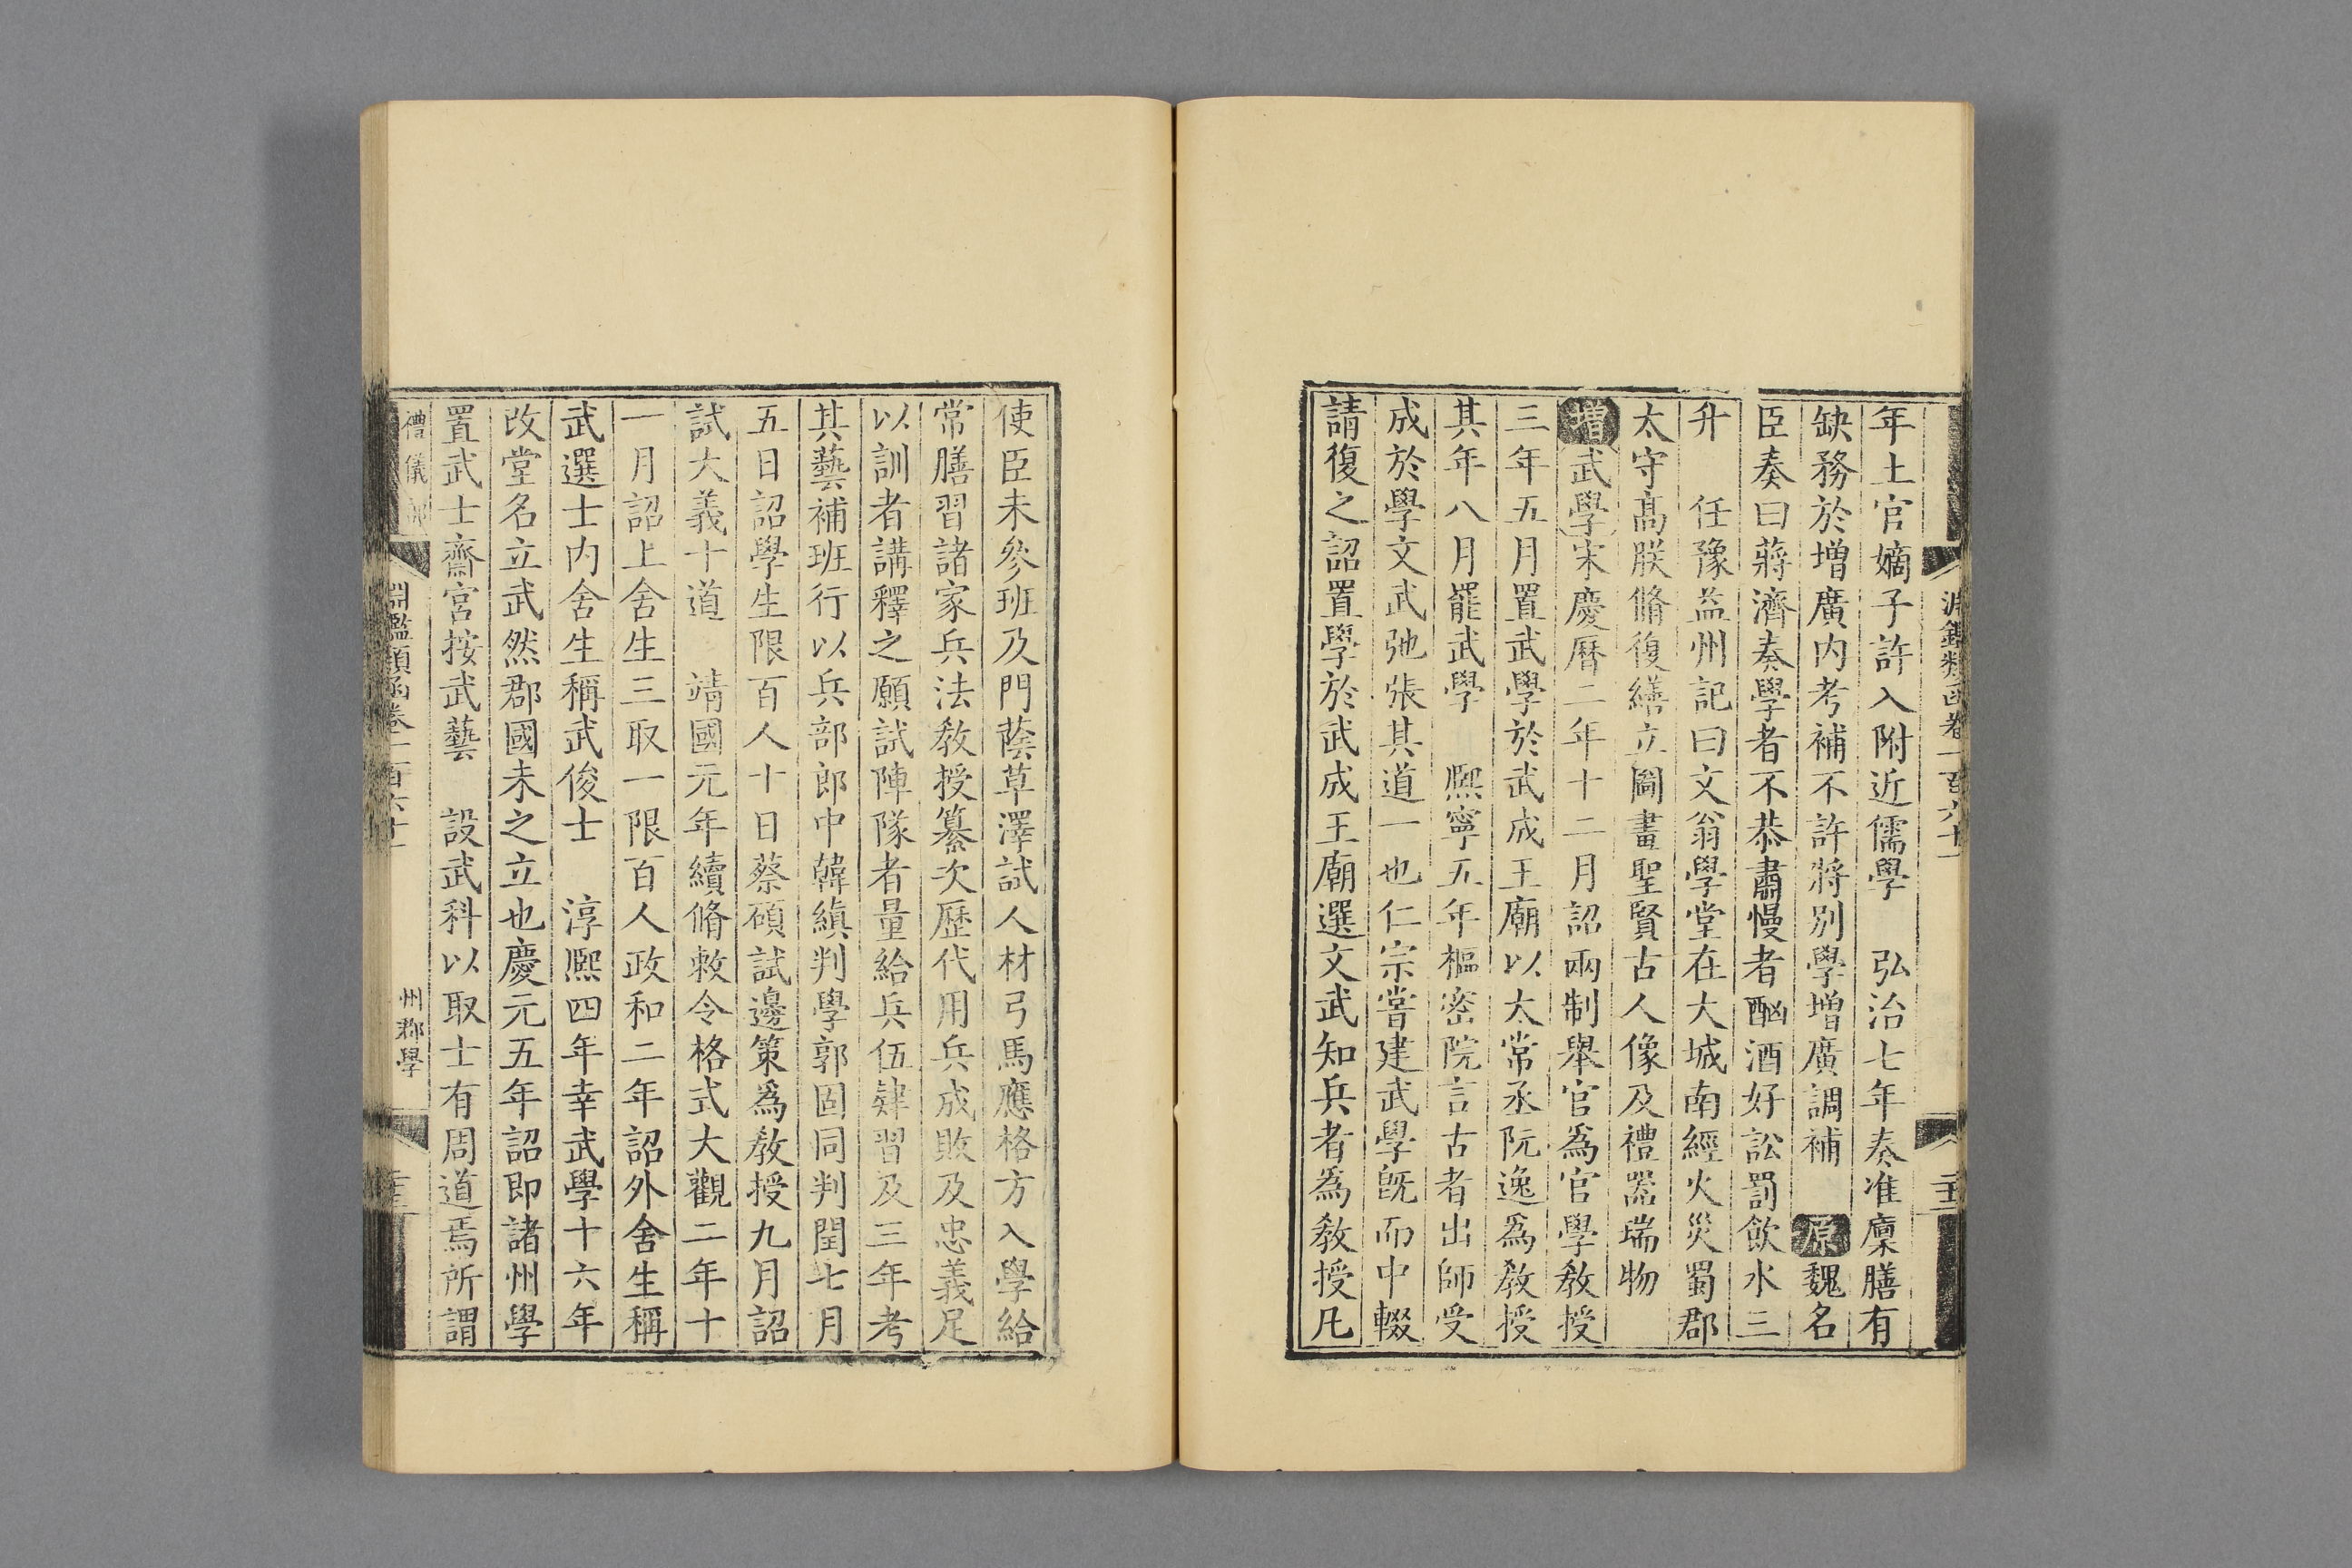 年土官嫡子許入附近儒學　弘治七年奏准廩膳有
缺務於增廣内考補不許將别學增廣調補　原魏名
臣奏曰蔣濟奏學者不恭肅慢者酗酒好訟罰飲水三
升　任豫益州記曰文翁學堂在大城南經火災蜀郡
太守髙朕脩復繕立圖畫聖賢古人像及禮器瑞物
增武學宋慶曆二年十二月詔兩制舉官爲官學教授
三年五月置武學於武成王廟以太常丞阮逸爲教授
其年八月罷武學　熙寧五年樞密院言古者出師受
成於學文武弛張其道一也仁宗嘗建武學旣而中輟
請復之詔置學於武成王廟選文武知兵者爲教授凡
使臣未參班及門蔭草澤試人材弓馬應格方入學給
常膳習諸家兵法教授纂次歷代用兵成敗及忠義足
以訓者講釋之願試陣隊者量給兵伍肄習及三年考
其藝補班行以兵部郎中韓縝判學郭固同判閏七月
五日詔學生限百人十日蔡碩試邊策爲教授九月詔
試大義十道　靖國元年續脩敕令格式大觀二年十
一月詔上舍生三取一限百人政和二年詔外舍生稱
武選士内舍生稱武俊士　淳熙四年幸武學十六年
改堂名立武然郡國未之立也慶元五年詔即諸州學
置武士齋宫按武藝　設武科以取士有周道焉所謂
淵鑑類函卷一百六十一
州郡學